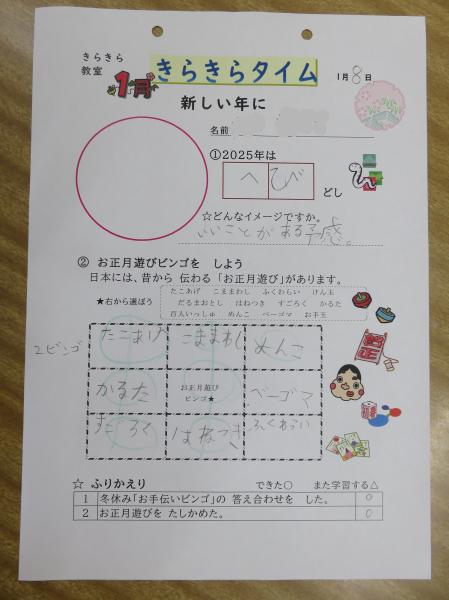 きらきら
教室
1月
きらきらタイム
1月8日
新しい年に
名前
①2025年は
へび
どし
☆どんなイメージですか。
いいことがある予感。
② お正月遊びビンゴを しよう
日本には、昔から 伝わる「お正月遊び」があります。
★右から選ぼう
たこあげ こままわし ふくわらい けん玉
だるまおとし はねつき すごろく かるた
百人いっしゅ めんこ ベーゴマ お手玉
2ビンゴ
たこあげ こままわし めんこ
かるた お正月遊びビンゴ★ ベーゴマ
すごろく はねつき ふくわらい
☆ ふりかえり できた○ また学習する△
1 冬休み「お手伝いビンゴ」の 答え合わせを した。 ○
2 お正月遊びを たしかめた。 ○